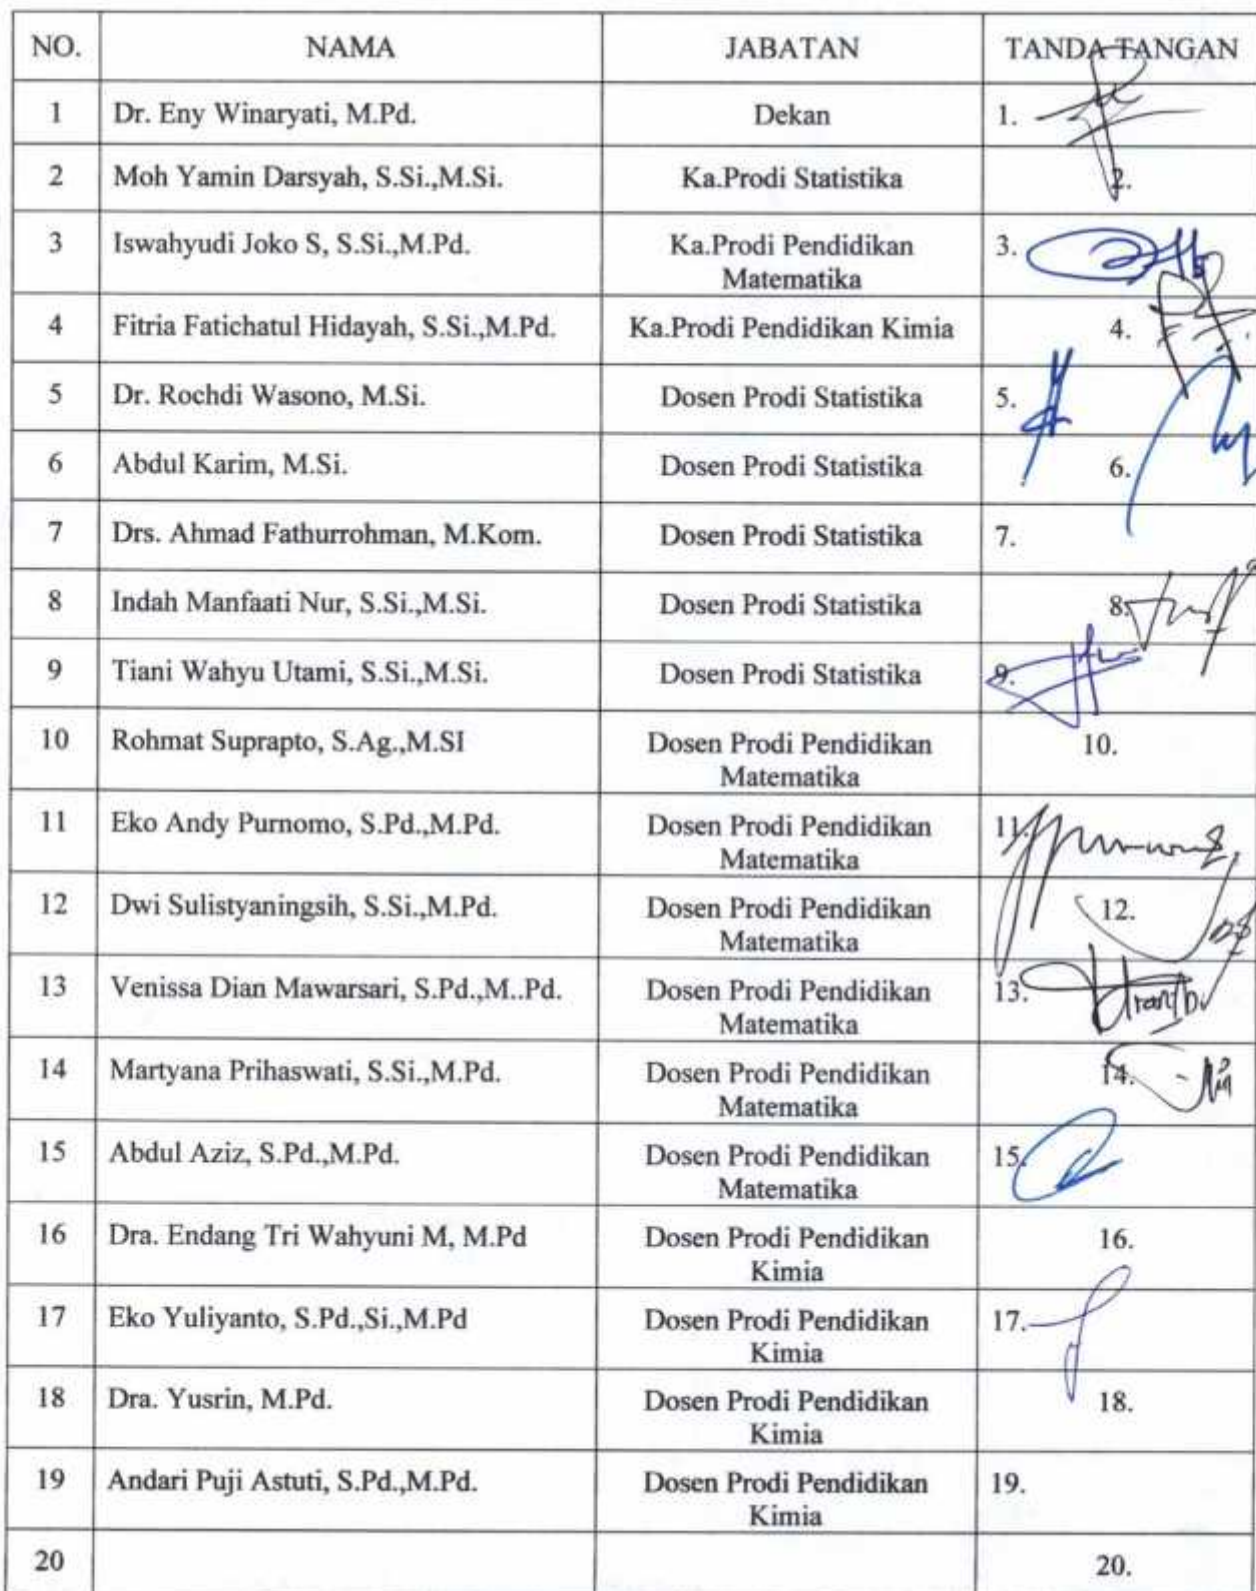 NO. NAMA JABATAN TANDA TANGAN
1 Dr. Eny Winaryati, M.Pd. Dekan 1.
2 Moh Yamin Darsyah, S.Si.,M.Si. Ka.Prodi Statistika 2.
3 Iswahyudi Joko S, S.Si.,M.Pd. Ka.Prodi Pendidikan 3.
Matematika
4 Fitria Fatichatul Hidayah, S.Si.,M.Pd. Ka.Prodi Pendidikan Kimia 4.
5 Dr. Rochdi Wasono, M.Si. Dosen Prodi Statistika 5.
6 Abdul Karim, M.Si. Dosen Prodi Statistika 6.
7 Drs. Ahmad Fathurrohman, M.Kom. Dosen Prodi Statistika 7.
8 Indah Manfaati Nur, S.Si.,M.Si. Dosen Prodi Statistika 8.
9 Tiani Wahyu Utami, S.Si.,M.Si. Dosen Prodi Statistika 9.
10 Rohmat Suprapto, S.Ag.,M.SI Dosen Prodi Pendidikan 10.
Matematika
11 Eko Andy Purnomo, S.Pd.,M.Pd. Dosen Prodi Pendidikan 11.
Matematika
12 Dwi Sulistyaningsih, S.Si.,M.Pd. Dosen Prodi Pendidikan 12.
Matematika
13 Venissa Dian Mawarsari, S.Pd.,M..Pd. Dosen Prodi Pendidikan 13.
Matematika
14 Martyana Prihaswati, S.Si.,M.Pd. Dosen Prodi Pendidikan 14.
Matematika
15 Abdul Aziz, S.Pd.,M.Pd. Dosen Prodi Pendidikan 15.
Matematika
16 Dra. Endang Tri Wahyuni M, M.Pd Dosen Prodi Pendidikan 16.
Kimia
17 Eko Yuliyanto, S.Pd.,Si.,M.Pd Dosen Prodi Pendidikan 17.
Kimia
18 Dra. Yusrin, M.Pd. Dosen Prodi Pendidikan 18.
Kimia
19 Andari Puji Astuti, S.Pd.,M.Pd. Dosen Prodi Pendidikan 19.
Kimia
20 20.